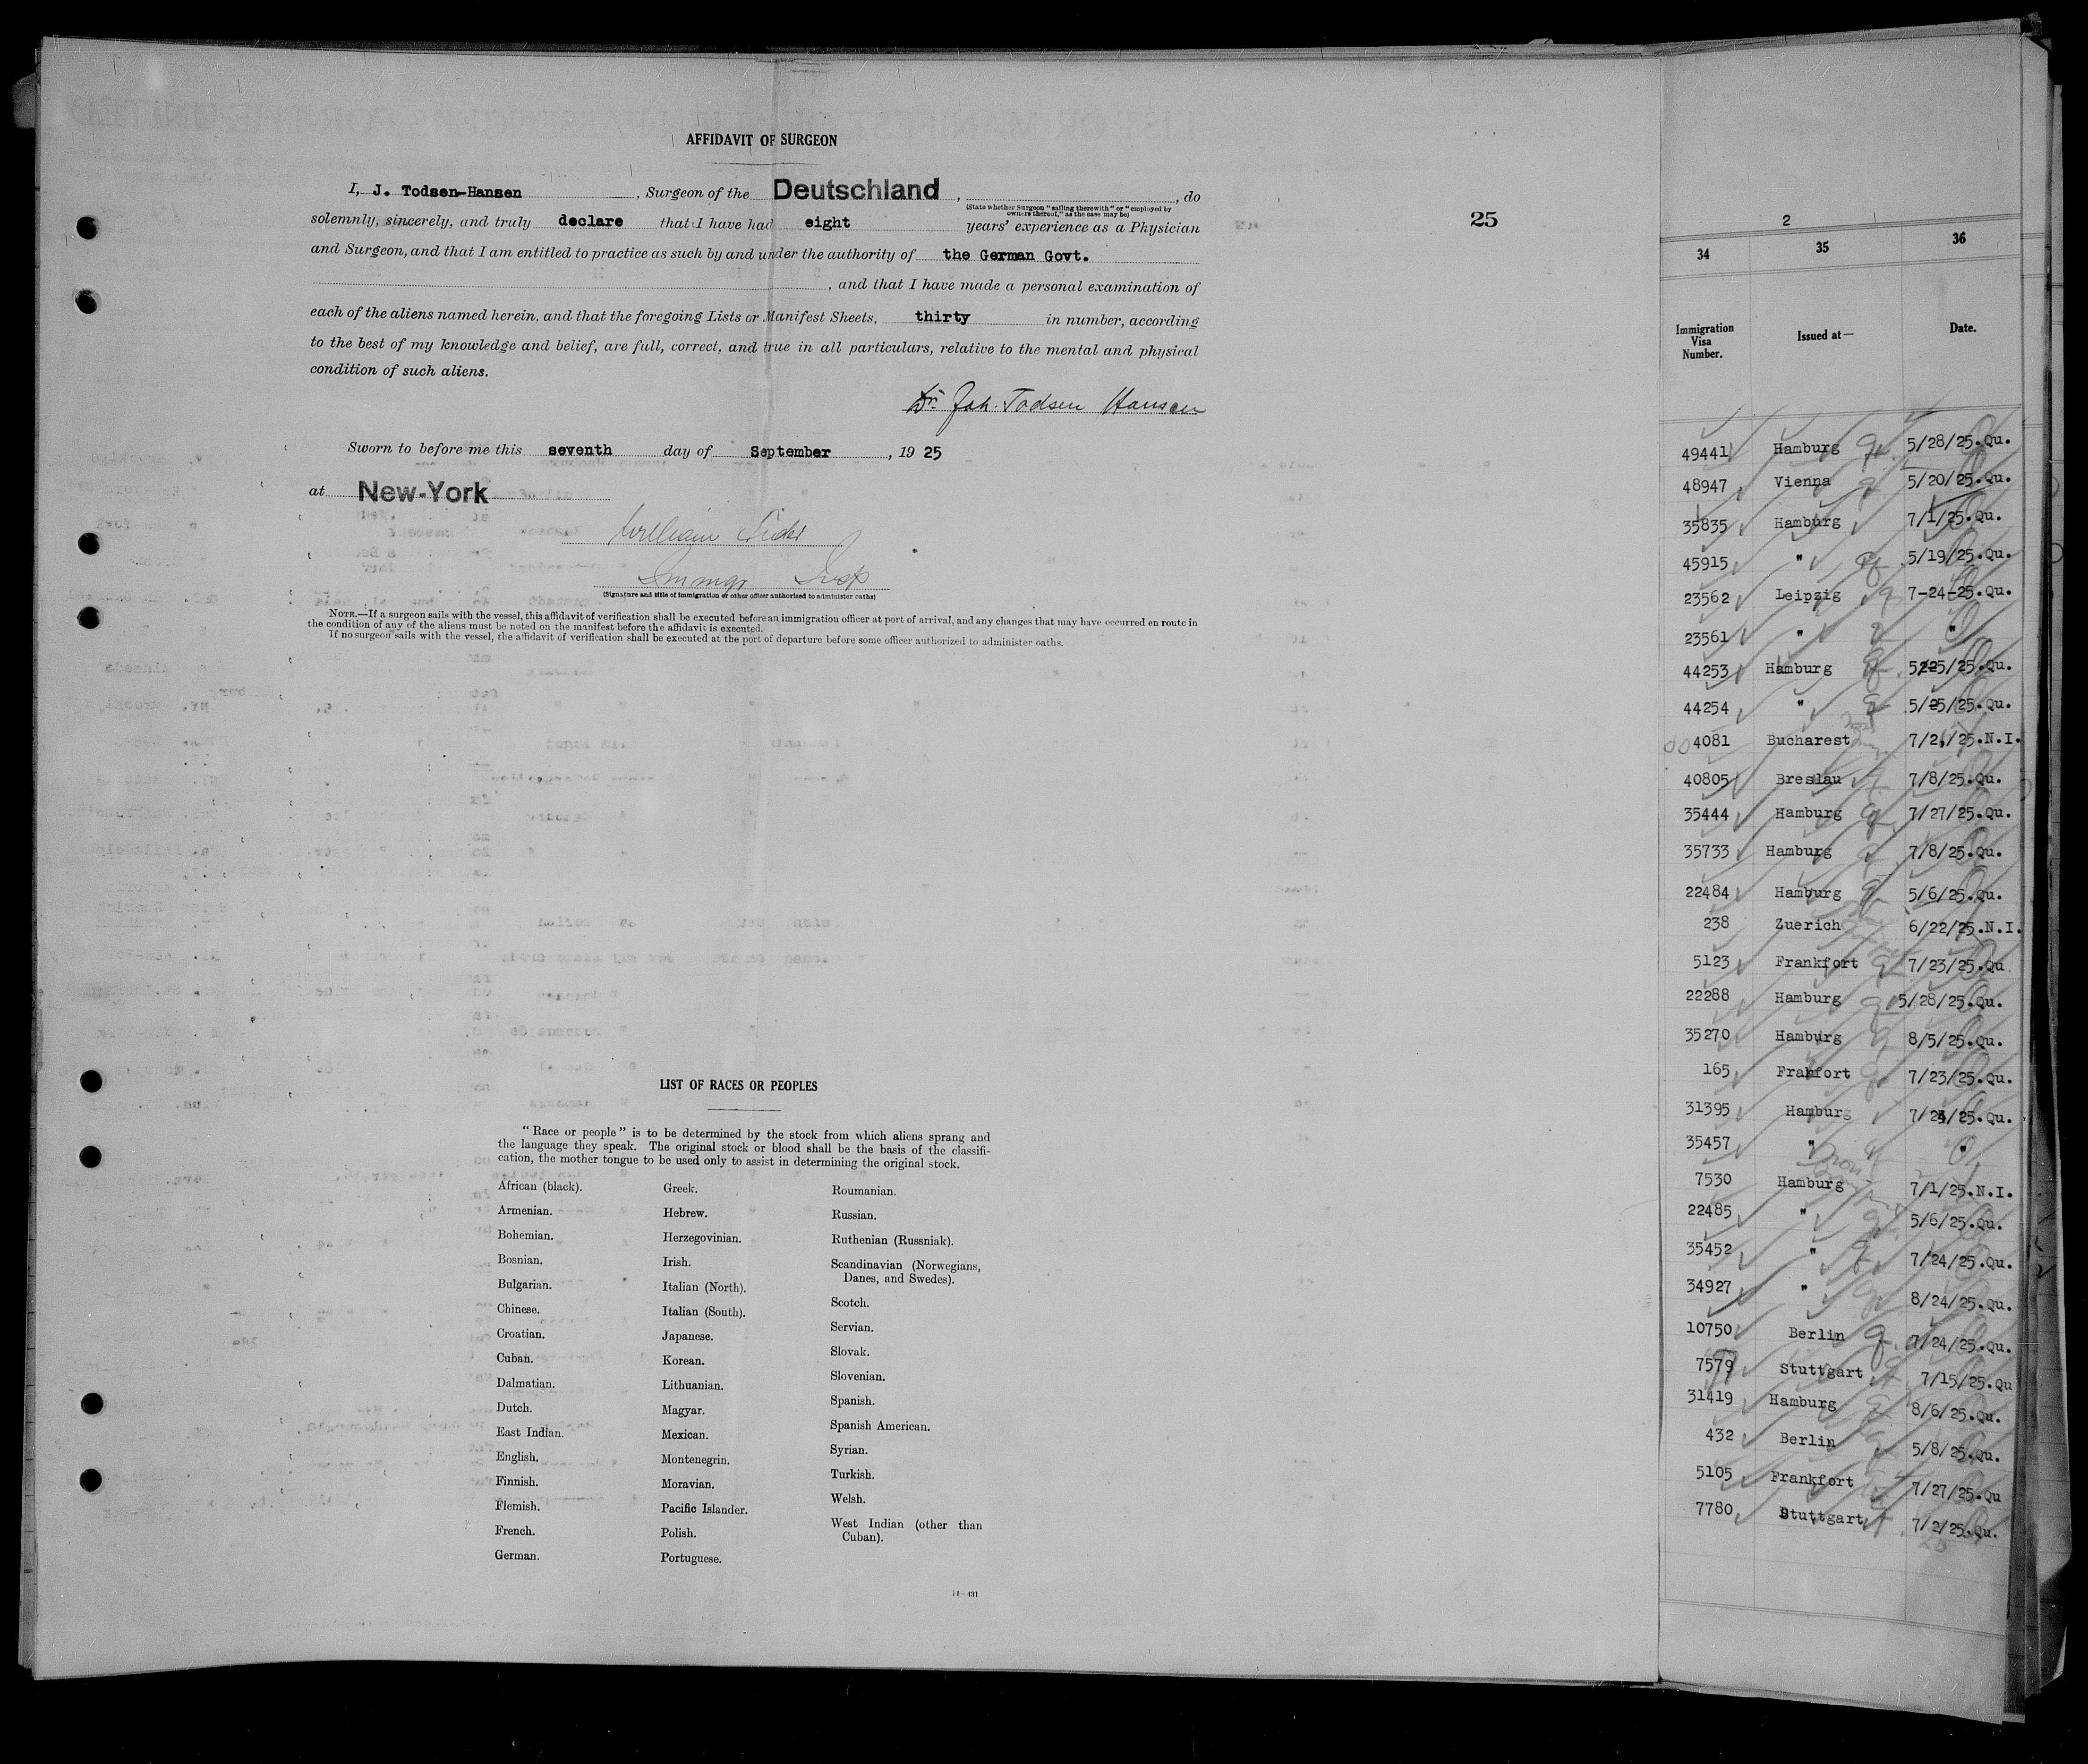 AFFIDAVIT OF SURGEON
I, J. Todsen-Hansen, Surgeon of the Deutschland, , do
(State whether Surgeon "sailing therewith" or "employed by owners thereof," as the case may be)
solemnly, sincerely, and truly declare that I have had eight years' experience as a Physician
and Surgeon, and that I am entitled to practice as such by and under the authority of the German Govt.
, and that I have made a personal examination of
each of the aliens named herein, and that the foregoing Lists or Manifest Sheets, thirty in number, according
to the best of my knowledge and belief, are full, correct, and true in all particulars, relative to the mental and physical
condition of such aliens.
Dr. Joh. Todsen Hansen
Sworn to before me this seventh day of September, 19 25
at New-York
William
Immgr Insp
(Signature and title of immigration or other officer authorized to administer oaths)
NOTE.—If a surgeon sails with the vessel, this affidavit of verification shall be executed before an immigration officer at port of arrival, and any changes that may have occurred en route in
the condition of any of the aliens must be noted on the manifest before the affidavit is executed.
If no surgeon sails with the vessel, the affidavit of verification shall be executed at the port of departure before some officer authorized to administer oaths.
LIST OF RACES OR PEOPLES
"Race or people" is to be determined by the stock from which aliens sprang and
the language they speak. The original stock or blood shall be the basis of the classifi-
cation, the mother tongue to be used only to assist in determining the original stock.
African (black).
Armenian.
Bohemian.
Bosnian.
Bulgarian.
Chinese.
Croatian.
Cuban.
Dalmatian.
Dutch.
East Indian.
English.
Finnish.
Flemish.
French.
German.
Greek.
Hebrew.
Herzegovinian.
Irish.
Italian (North).
Italian (South).
Japanese.
Korean.
Lithuanian.
Magyar.
Mexican.
Montenegrin.
Moravian.
Pacific Islander.
Polish.
Portuguese.
Roumanian.
Russian.
Ruthenian (Russniak).
Scandinavian (Norwegians,
Danes, and Swedes).
Scotch.
Servian.
Slovak.
Slovenian.
Spanish.
Spanish American.
Syrian.
Turkish.
Welsh.
West Indian (other than
Cuban).
14—431
25
2
34 35 36
Immigration Visa Number. Issued at— Date.
49441 Hamburg 5/28/25.Qu.
48947 Vienna 5/20/25.Qu.
35835 Hamburg 7/1/25.Qu.
45915 " 5/19/25.Qu.
23562 Leipzig 7-24-25.Qu.
23561 " "
44253 Hamburg 5/25/25.Qu.
44254 " 5/25/25.Qu.
4081 Bucharest 7/2/25.N.I.
40805 Breslau 7/8/25.Qu.
35444 Hamburg 7/27/25.Qu.
35733 Hamburg 7/8/25.Qu.
22484 Hamburg 5/6/25.Qu.
238 Zuerich 6/22/25.N.I.
5123 Frankfort 7/23/25.Qu
22288 Hamburg 5/28/25.Qu.
35270 Hamburg 8/5/25.Qu.
165 Frankfort 7/23/25.Qu.
31395 Hamburg 7/24/25.Qu.
35457 " "
7530 Hamburg 7/1/25.N.I.
22485 " 5/6/25.Qu.
35452 " 7/24/25.Qu.
34927 " 8/24/25.Qu.
10750 Berlin 7/24/25.Qu.
7579 Stuttgart 7/15/25.Qu
31419 Hamburg 8/6/25.Qu.
432 Berlin 5/8/25.Qu.
5105 Frankfort 7/27/25.Qu
7780 Stuttgart 7/2/25.Qu.